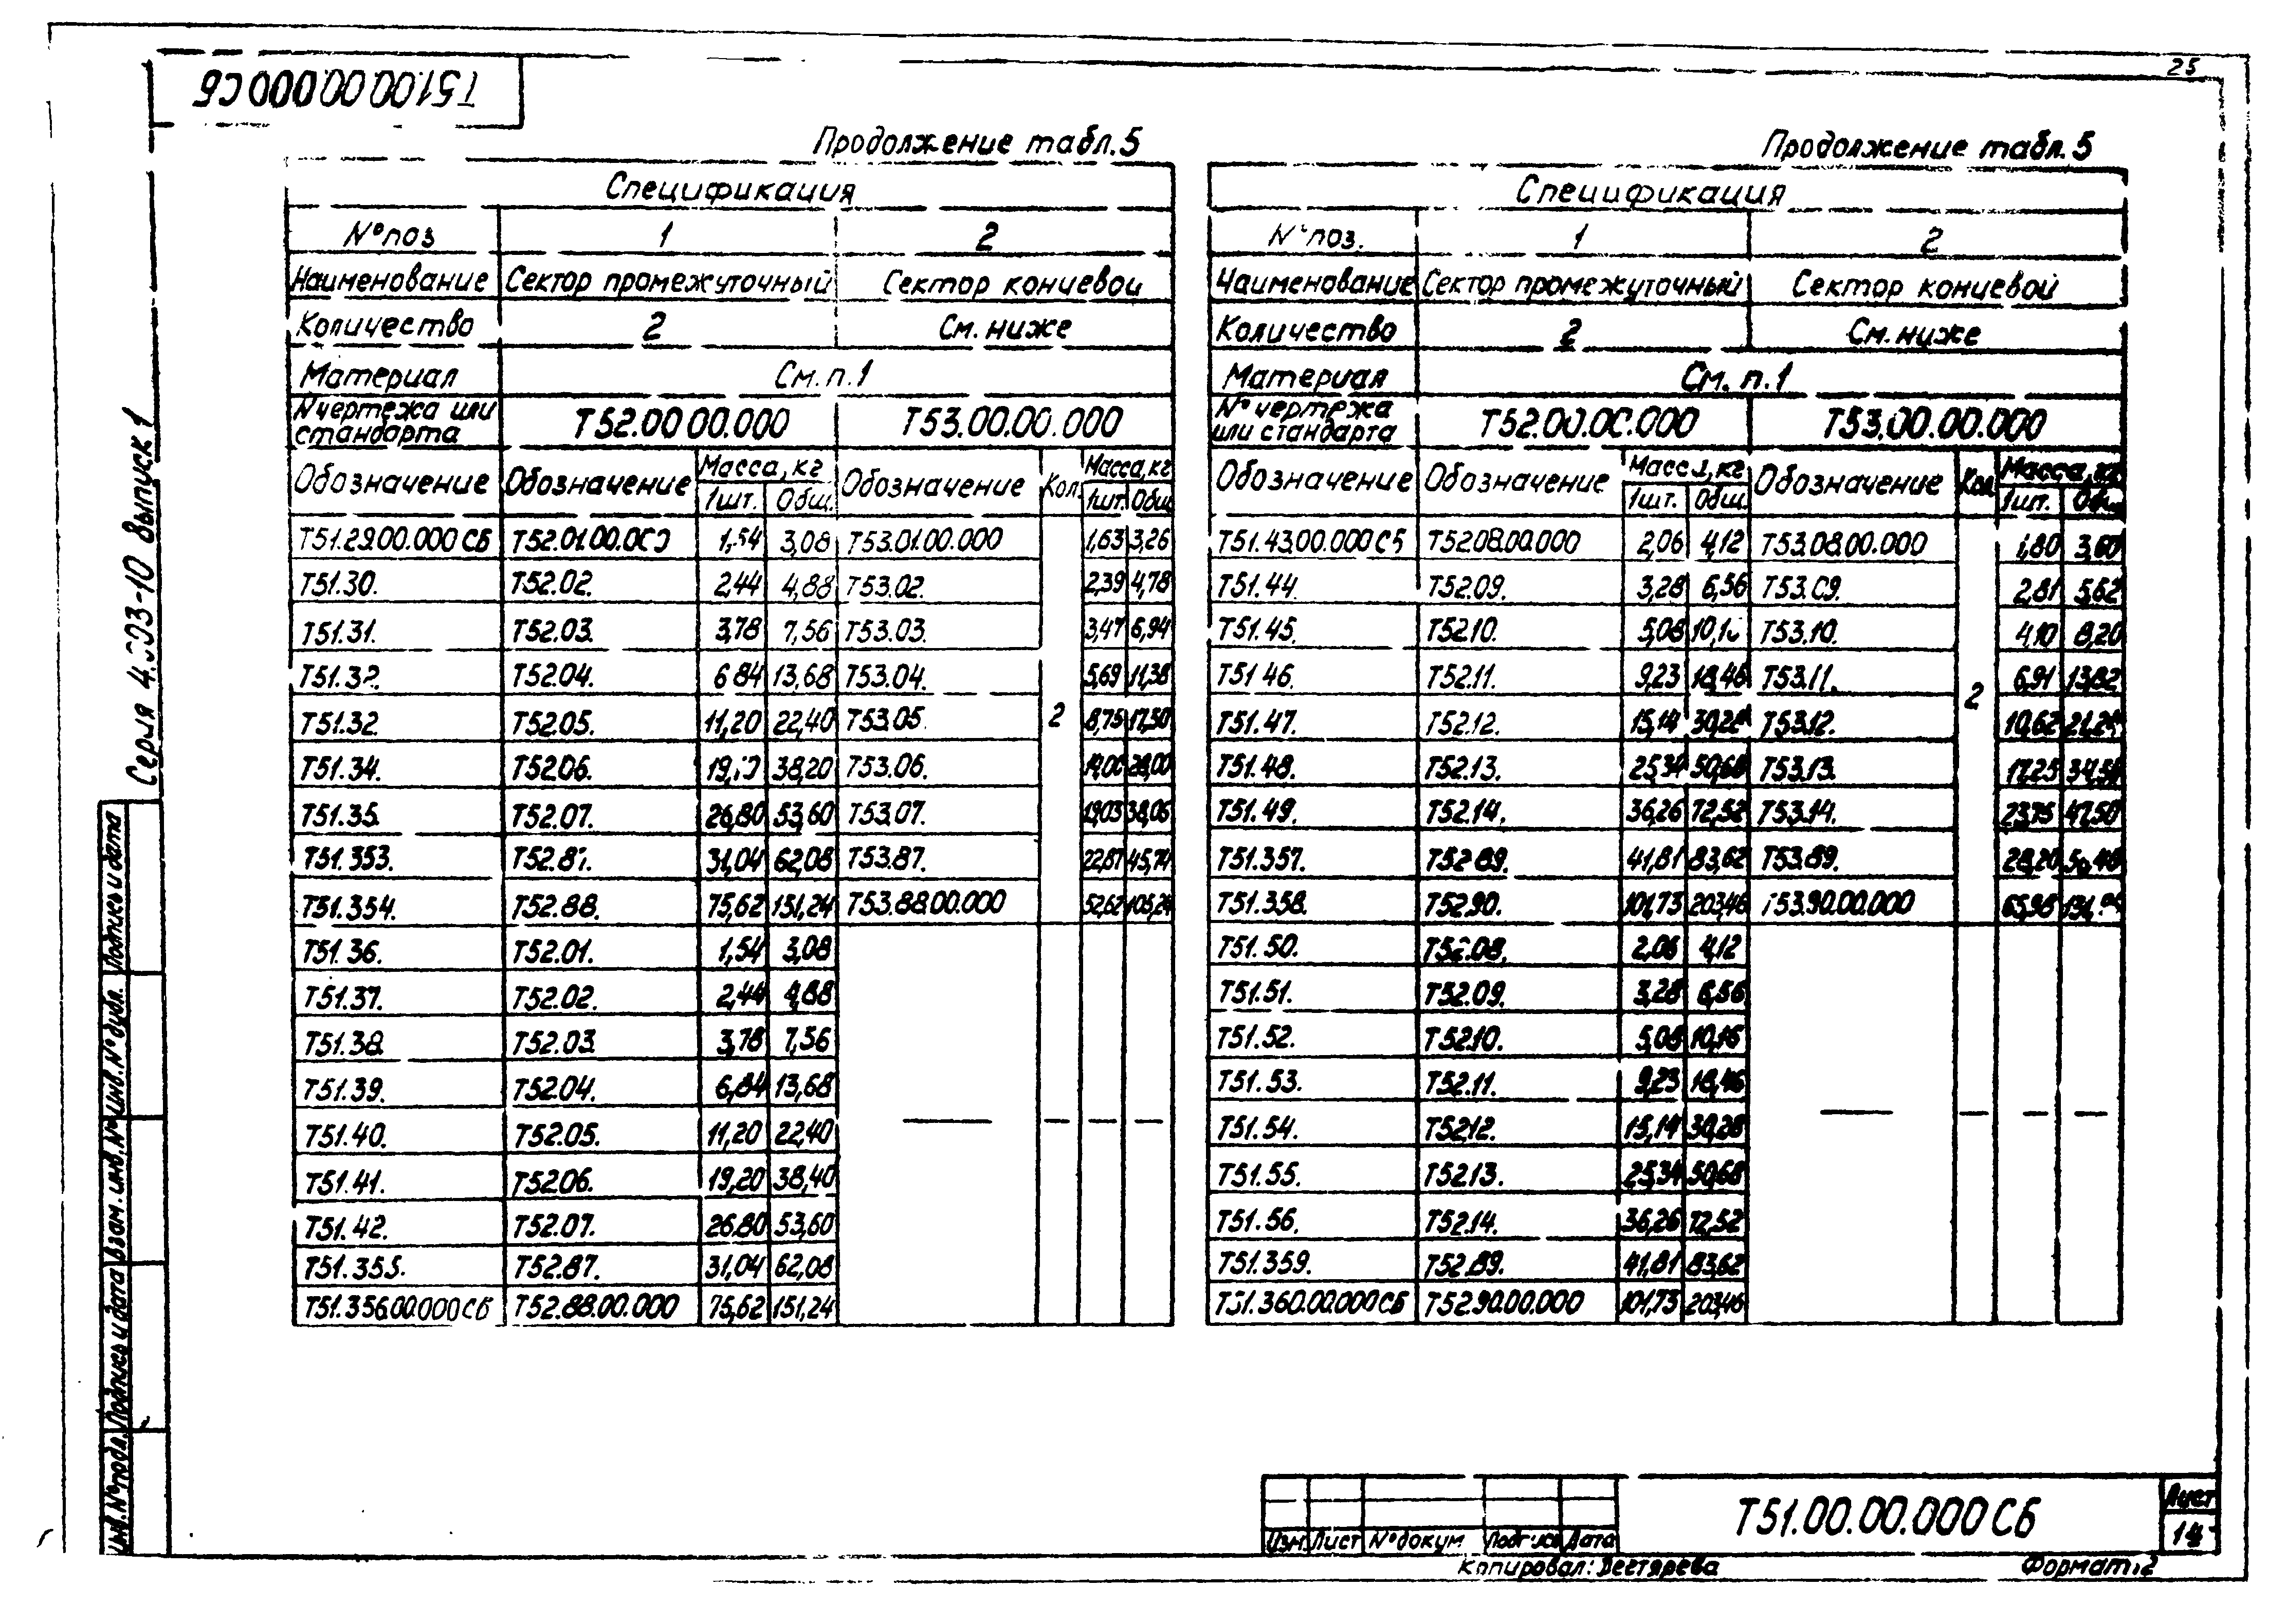 25
Т51.00.00.000СБ
Серия 4.903-10 Выпуск 1
Продолжение табл.5
Спецификация
№ поз 1 2
Наименование Сектор промежуточный Сектор концевой
Количество 2 См. ниже
Материал См. п.1
№ чертежа или стандарта Т52.00.00.000 Т53.00.00.000
Обозначение Обозначение Масса, кг Обозначение Кол. Масса, кг
1шт. Общ. 1шт. Общ.
Т51.29.00.000СБ Т52.01.00.000 1,54 3,08 Т53.01.00.000 1,63 3,26
Т51.30. Т52.02. 2,44 4,88 Т53.02. 2,39 4,78
Т51.31. Т52.03. 3,78 7,56 Т53.03. 3,47 6,94
Т51.32. Т52.04. 6,84 13,68 Т53.04. 5,69 11,38
Т51.32. Т52.05. 11,20 22,40 Т53.05. 2 8,75 17,50
Т51.34. Т52.06. 38,20 Т53.06. 14,00 28,00
Т51.35. Т52.07. 26,80 53,60 Т53.07. 19,03 38,06
Т51.353. Т52.87. 31,04 62,08 Т53.87. 22,87 45,74
Т51.354. Т52.88. 75,62 151,24 Т53.88.00.000 52,62 105,24
Т51.36. Т52.01. 1,54 3,08
Т51.37. Т52.02. 2,44 4,88
Т51.38. Т52.03. 3,78 7,56
Т51.39. Т52.04. 6,84 13,68
Т51.40. Т52.05. 11,20 22,40 — — — —
Т51.41. Т52.06. 19,20 38,40
Т51.42. Т52.07. 26,80 53,60
Т51.355. Т52.87. 31,04 62,08
Т51.356.00.000СБ Т52.88.00.000 75,62 151,24
Продолжение табл.5
Спецификация
№ поз. 1 2
Наименование Сектор промежуточный Сектор концевой
Количество 2 См. ниже
Материал См. п.1
№ чертежа или стандарта Т52.00.00.000 Т53.00.00.000
Обозначение Обозначение Масса, кг Обозначение Кол Масса, кг
1шт. Общ. 1шт. Общ.
Т51.43.00.000СБ Т52.08.00.000 2,06 4,12 Т53.08.00.000 1,80 3,60
Т51.44. Т52.09. 3,28 6,56 Т53.09. 2,81 5,62
Т51.45. Т52.10. 5,08 10,16 Т53.10. 4,10 8,20
Т51.46. Т52.11. 9,23 18,46 Т53.11. 6,91 13,82
Т51.47. Т52.12. 15,14 30,28 Т53.12. 2 10,62 21,24
Т51.48. Т52.13. 25,34 50,68 Т53.13. 17,25
Т51.49. Т52.14. 36,26 72,52 Т53.14. 23,75 47,50
Т51.357. Т52.89. 41,81 83,62 Т53.89. 28,20
Т51.358. Т52.90. 101,73 203,46 Т53.90.00.000 65,98
Т51.50. Т52.08. 2,06 4,12
Т51.51. Т52.09. 3,28 6,56
Т51.52. Т52.10. 5,08 10,16
Т51.53. Т52.11. 9,23 18,46
Т51.54. Т52.12. 15,14 30,28 — — — —
Т51.55. Т52.13. 25,34 50,68
Т51.56. Т52.14. 36,26 72,52
Т51.359. Т52.89. 41,81 83,62
Т51.360.00.000СБ Т52.90.00.000 101,73 203,46
Инв.№подл. Подпись и дата Взам.инв.№ Инв.№дубл. Подпись и дата
Изм. Лист № докум Подпись Дата
Т51.00.00.000СБ
Лист
14
Копировал: Дегтярева
Формат 12